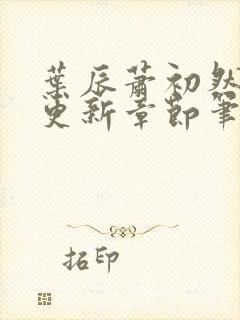 葉辰蕭初然
更新章節筆
拓印